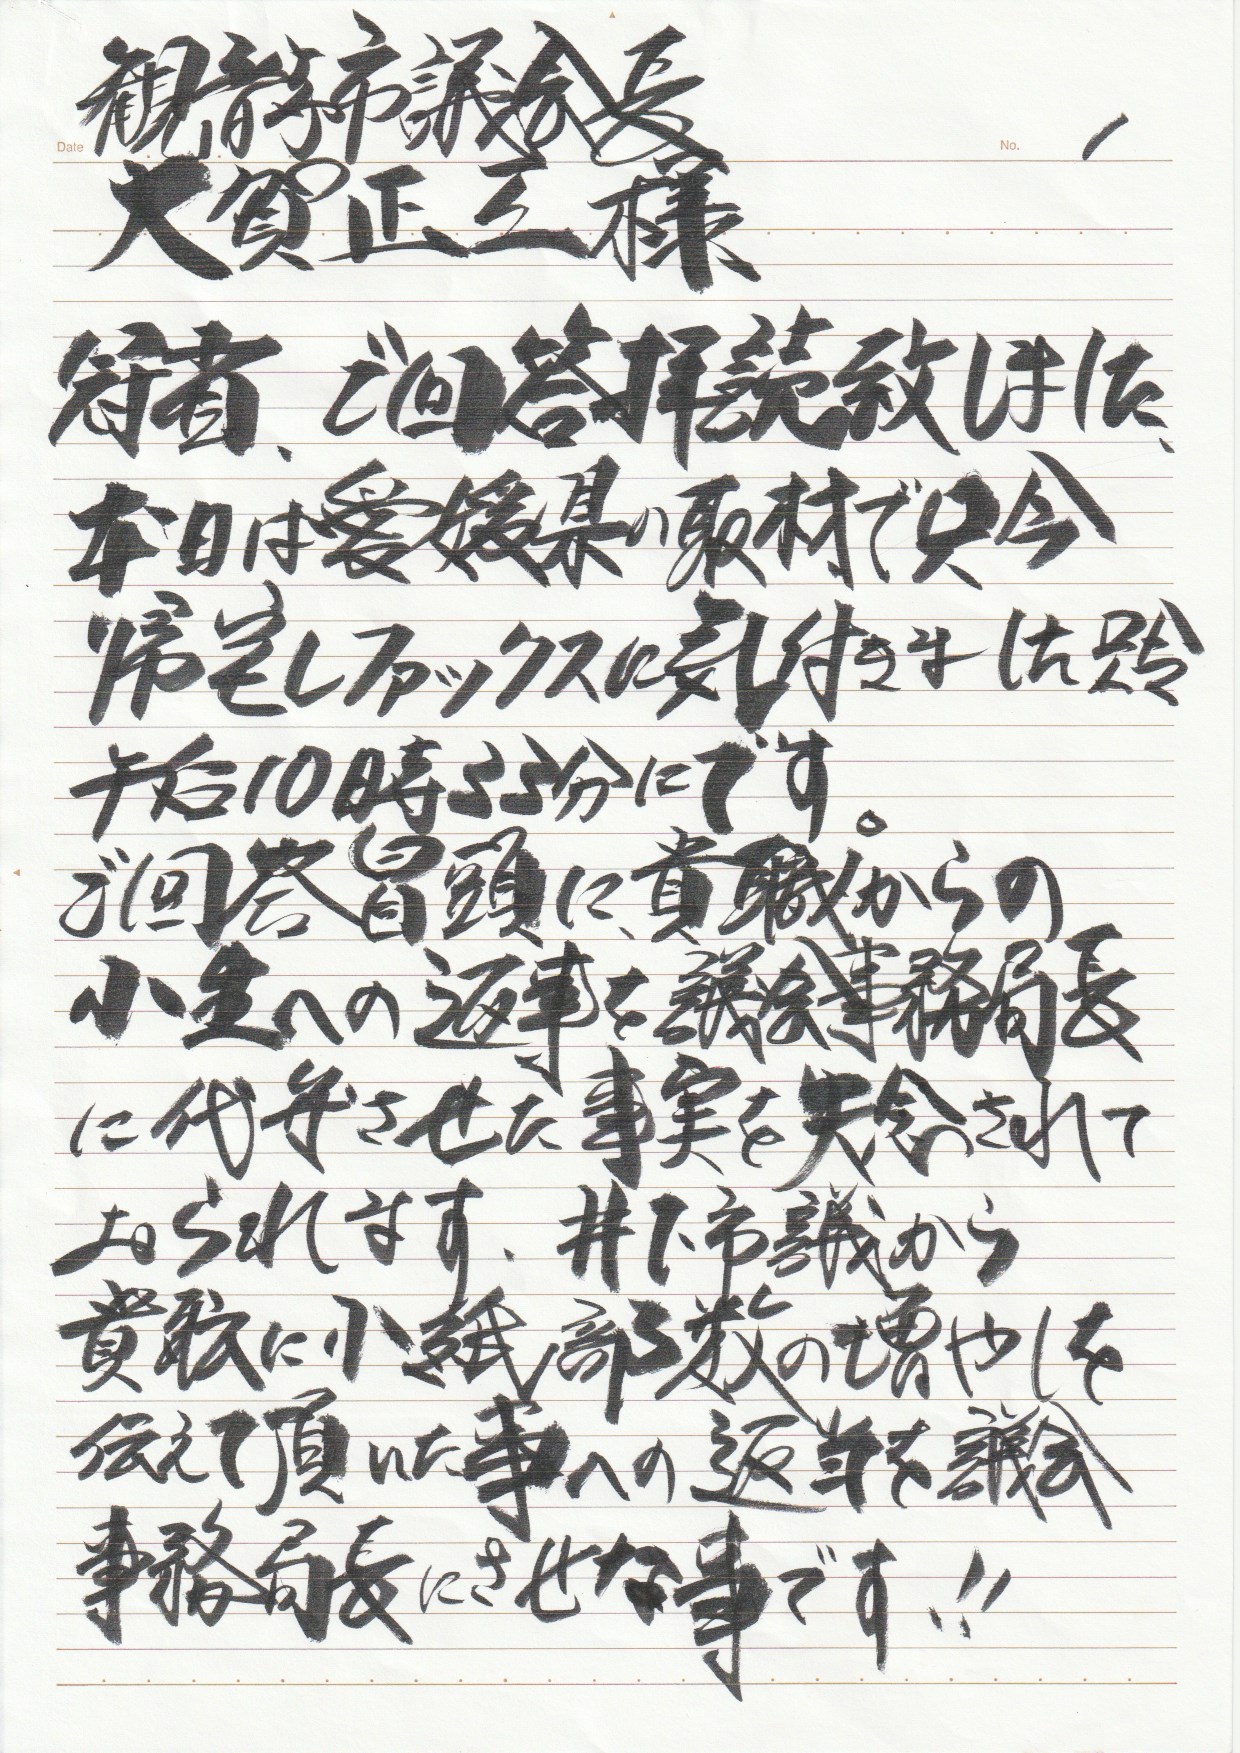 観音寺市議会長
Date
No. 1
大賀正三様
冠省、ご回答拝読致しました、
本日は愛媛県の取材で只今
帰宅しファックスに気付きました
午后10時55分にです。
ご回答冒頭に、貴職からの
小生への返事を議会事務局長
に代弁させた事実を失念されて
おられます、井下市議から
貴殿に小紙、部数の増やしを
伝えて頂いた事への返答を議会
事務局長にさせな事です!!